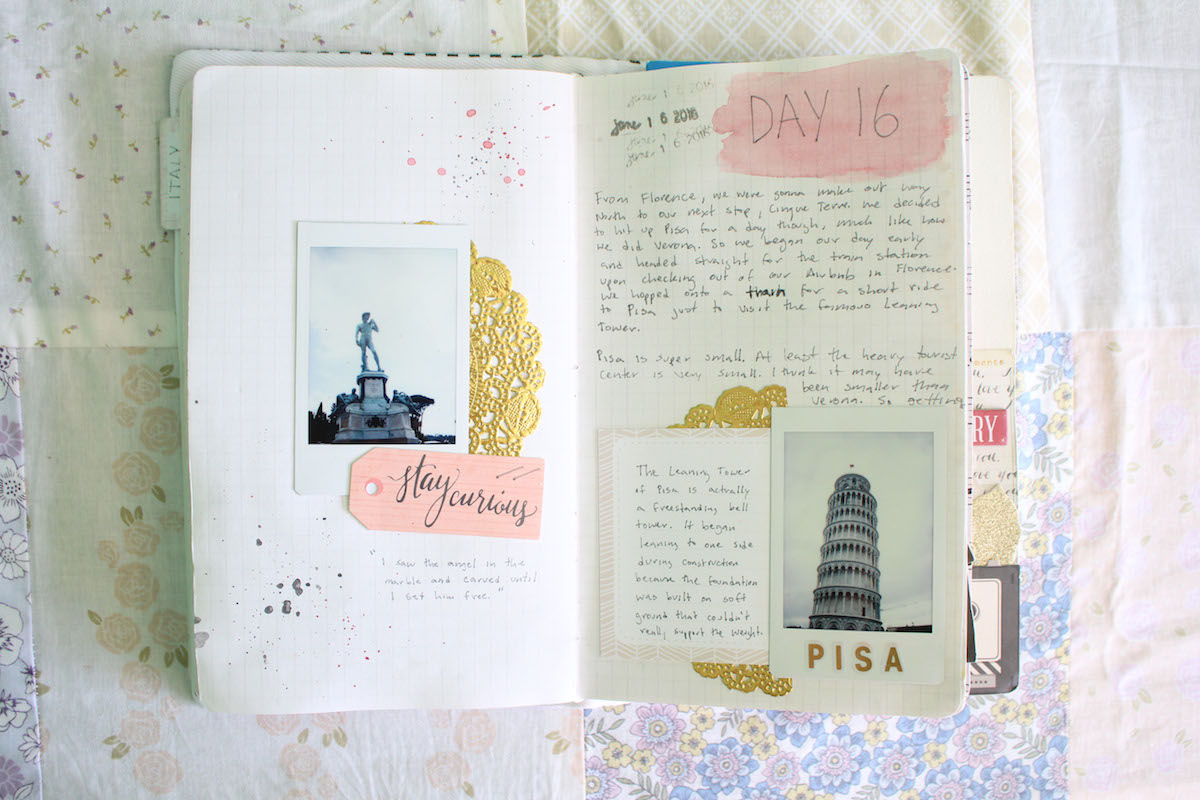 ITALY
stay
curious
"I saw the angel in the
marble and carved until
I set him free."
june 1 6 2016
june 1 6 2016
june 1 6 2016
DAY 16
From Florence, we were gonna make our way
North to our next stop, Cinque Terre. We decided
to hit up Pisa for a day though, much like how
we did Verona. So we began our day early
and headed straight for the train station
upon checking out of our Airbnb in Florence.
We hopped onto a train for a short ride
to Pisa just to visit the famous Leaning
Tower.
Pisa is super small. At least the heavy tourist
center is very small. I think it may have
been smaller than
Verona. So getting
The Leaning Tower
of Pisa is actually
a freestanding bell
tower. It began
leaning to one side
during construction
because the foundation
was built on soft
ground that couldn't
really support the weight.
PISA
love you
RY
you.
love you